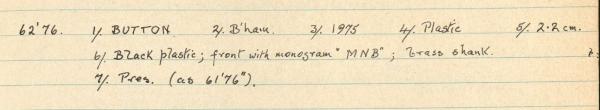 62'76. 1/. BUTTON. 2/. B'ham. 3/. 1975 4/. Plastic 5/. 2.2 cm.
6/. Black plastic; front with monogram "MNB"; brass shank.
7/. Pres. (as 61'76").